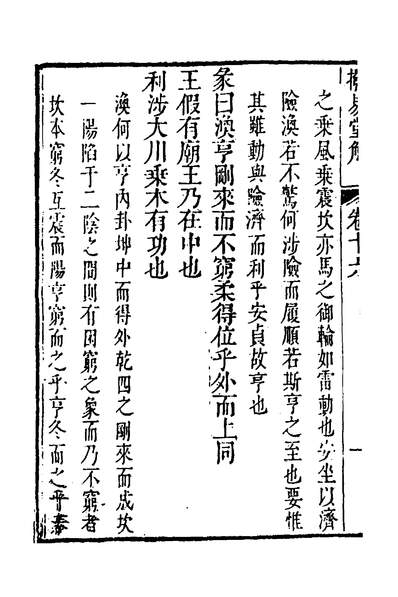 易堂解 卷十六 一
之乘風乘震坎亦馬之御輪如雷動也安坐以濟
險渙若不驚何涉險而履順若斯亨之至也要惟
其難動與險濟而利乎安貞故亨也
彖曰渙亨剛來而不窮柔得位乎外而上同
王假有廟王乃在中也
利涉大川乘木有功也
渙何以亨內卦坤中而得外乾四之剛來而成坎
一陽陷于二陰之間則有困窮之象而乃不窮者
坎本窮冬互震而陽亨窮而之乎亨冬而之乎春